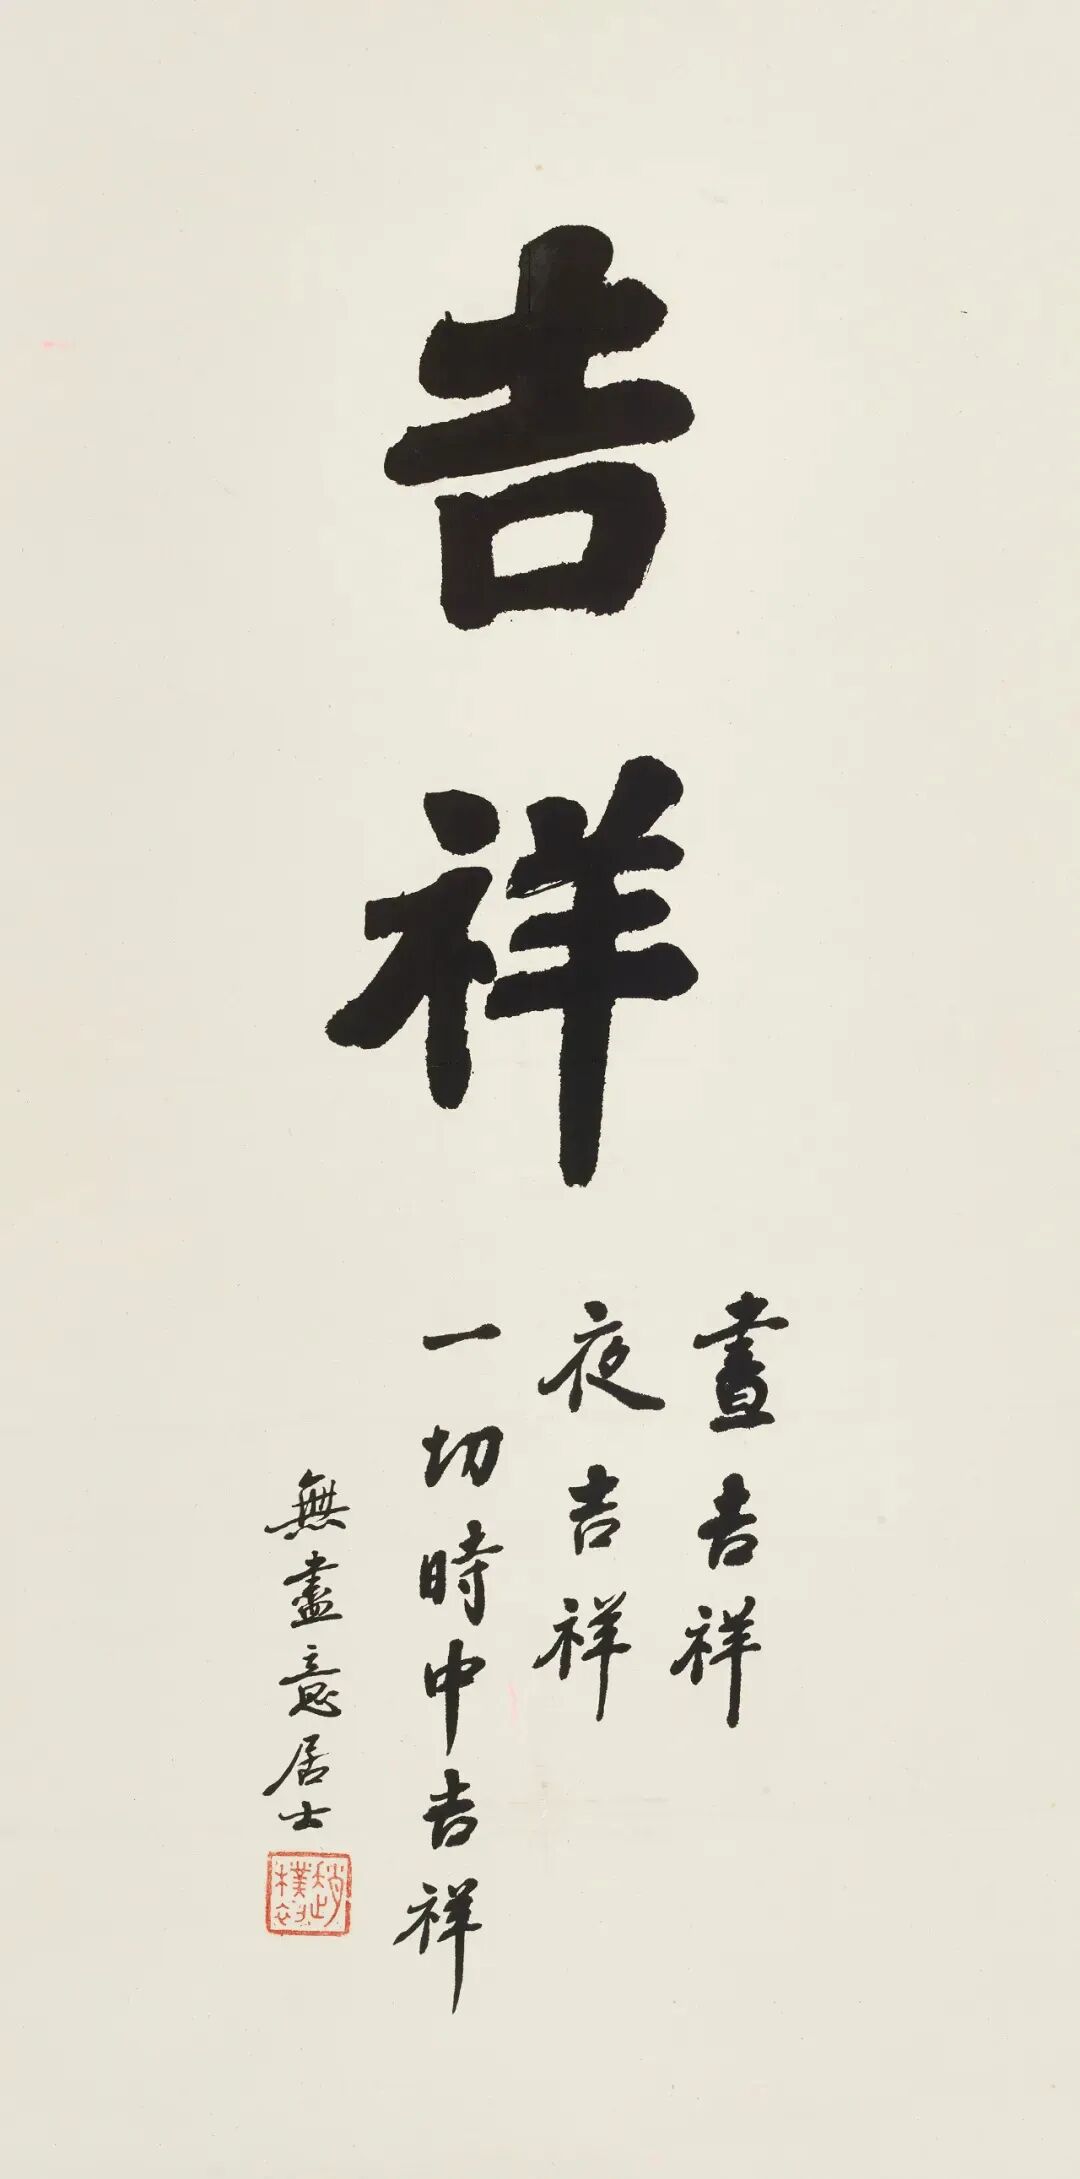 吉祥
晝吉祥
夜吉祥
一切時中吉祥
無盡意居士
趙樸初